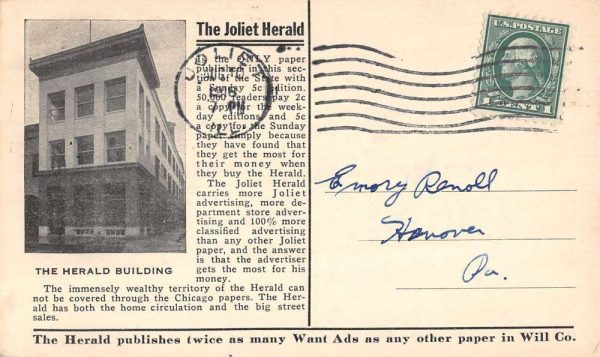 The Joliet Herald
is the ONLY paper
published in this sec-
tion of the State with
a Sunday 5c edition.
50,000 readers pay 2c
a copy for the week-
day editions and 5c
a copy for the Sunday
paper simply because
they have found that
they get the most for
their money when
they buy the Herald.
The Joliet Herald
carries more Joliet
advertising, more de-
partment store adver-
tising and 100% more
classified advertising
than any other Joliet
paper, and the answer
is that the advertiser
gets the most for his
money.
THE HERALD BUILDING
The immensely wealthy territory of the Herald can
not be covered through the Chicago papers. The Her-
ald has both the home circulation and the big street
sales.
JOLIET
PM
U.S. POSTAGE
Emory Renoll
Hanover
Pa.
The Herald publishes twice as many Want Ads as any other paper in Will Co.